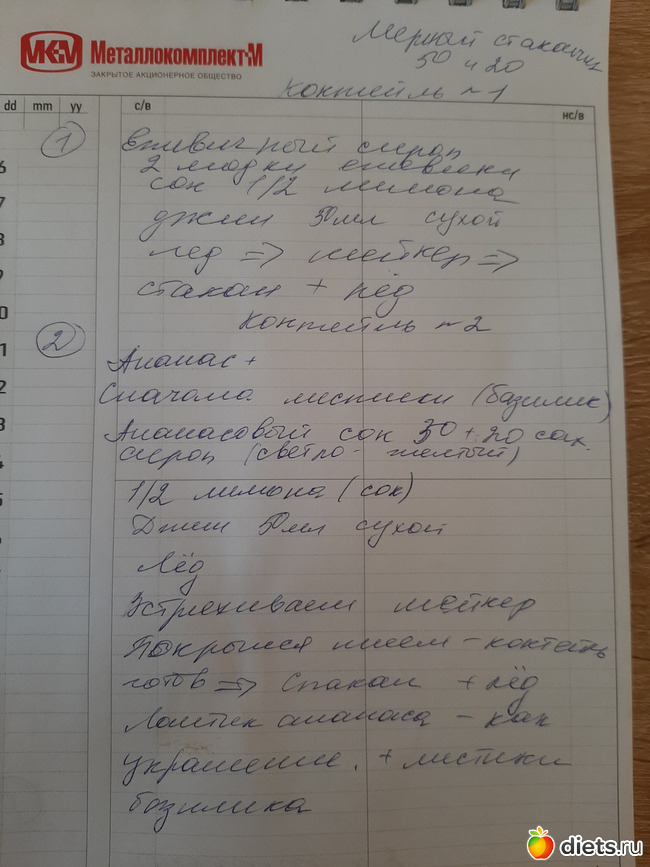 МКМ МЕТАЛЛОКОМПЛЕКТ-М
ЗАКРЫТОЕ АКЦИОНЕРНОЕ ОБЩЕСТВО
Мерный стаканчик
50 и 20
Коктейль ~1
dd mm yy с/в нс/в
1 Ежевичный сироп
2 ягодки ежевики
сок 1/2 лимона
джин 50мл сухой
лед => шейкер =>
стакан + лёд
Коктейль ~2
2 Ананас +
Сначала листики (базилик)
Ананасовый сок 30 + 20 сах.
сироп (светло-желтый)
1/2 лимона (сок)
Джин 50мл сухой
Лёд
Встряхиваем шейкер
Покрылся инеем - коктейль
готов => Стакан + лёд
Ломтик ананаса - как
украшение. + листики
базилика
diets.ru